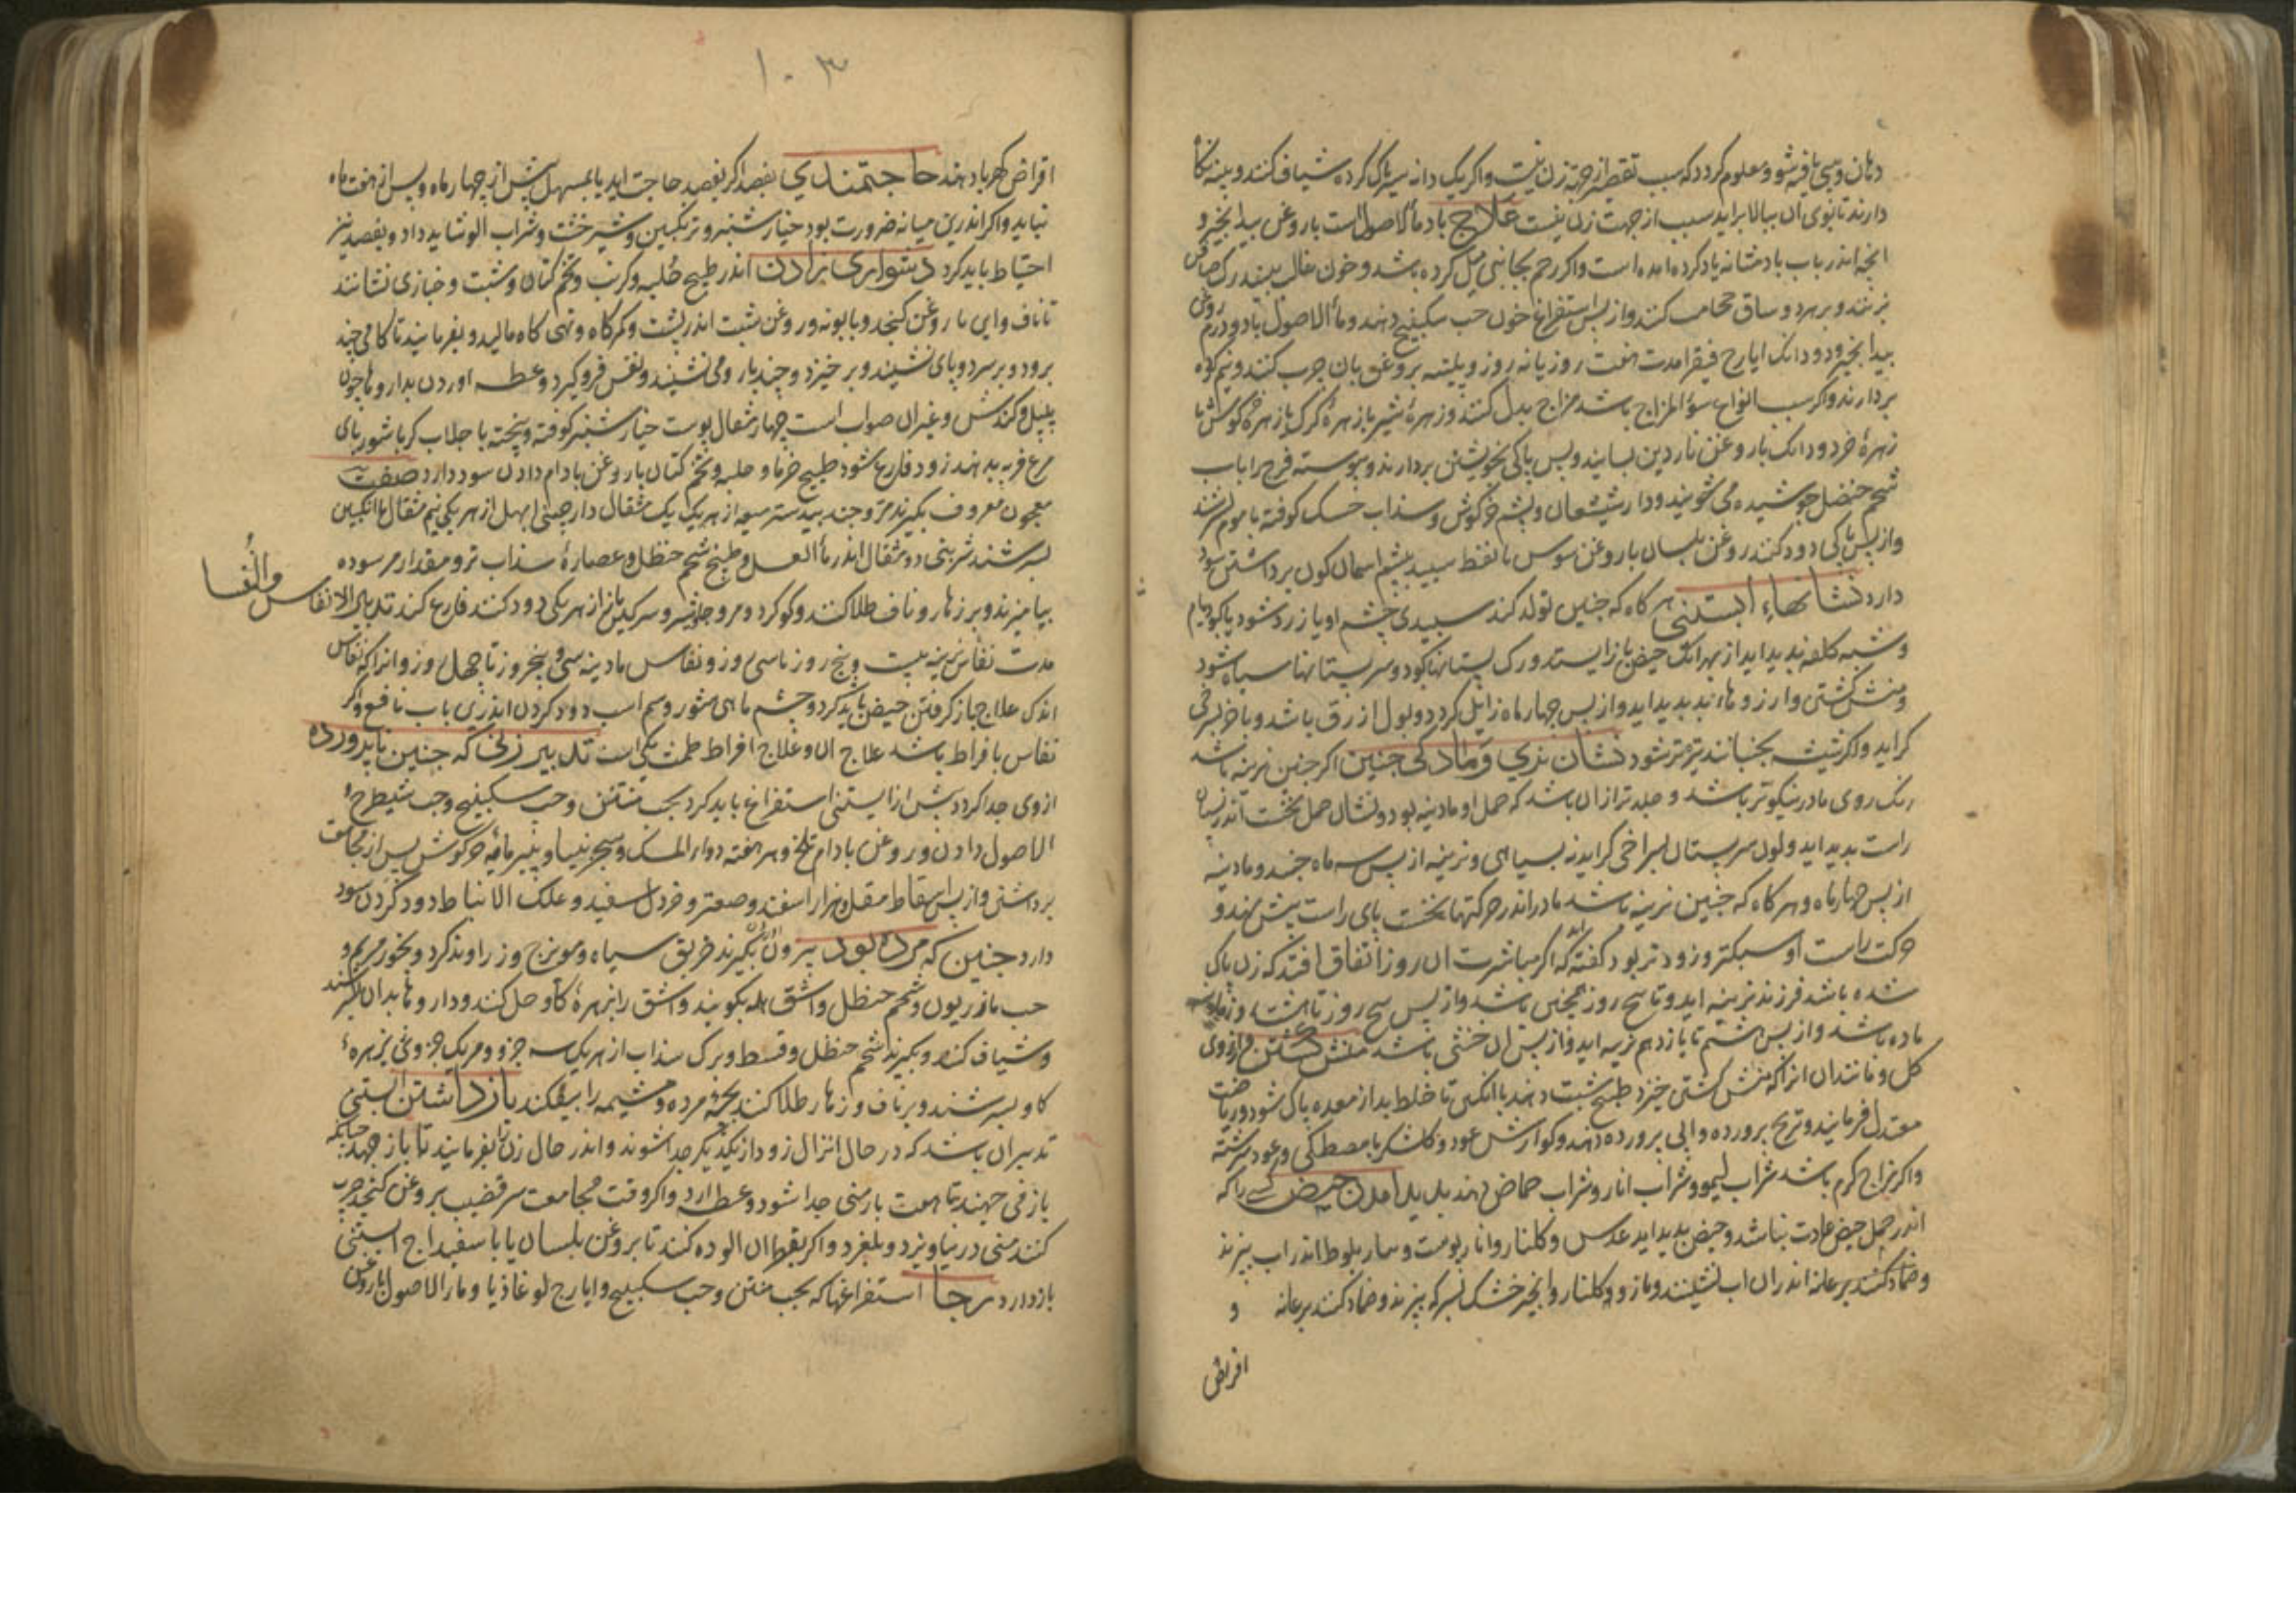 دهان و بینی یافته شود معلوم کردد که سبب تقصیر از جهة زن نیست و اکر یک دانه سیر پاک کرده شیاف کنند و بینه نکاه
دارند تا بوی آن ببالا براید سبب از جهت زن نیست علاج باد ماء الاصول است با روغن بیدانجیر و
انچه اندر باب باد مثانه یاد کرده امده است و اکر رحم بجانبی میل کرده باشد و خون غالب بیند رک صافن
بزنند و بر هر دو ساق حجامت کنند و از پس استفراغ خون حب سکبینج دهند و ماء الاصول با دو درم روغن
بیدانجیر و دو دانک ایارج فیقرا مدت هفت روز یا نه روز و پلیته بروغن بان چرب کنند و نیم کرم
بردارند و اکر سبب انواع سوء المزاج باشد مزاج بدل کنند و زهرهٔ شیر یا زهرهٔ کرک یا زهرهٔ خرکوش یا
زهرهٔ خرد دو دانک با روغن ناردین بسایند و پس پاکی بخویشتن بردارند و پیوسته فرج را باب
شحم حنظل جوشیده می شویند و دارشیشعان و پشم خرکوش و سذاب خشک کوفته با موم بسرشند
و از پس پاکی دود کنند روغن بلسان با روغن سوس با نفط سپید بپشم اسمان کون برداشتن سود
دارد نشانهاء ابستنی هر کاه که جنین تولد کند سپیدی چشم او یا زرد شود یا کبود فام
و شبه کلفه پدید اید از بهر انک حیض باز ایستد و رک پستانها کبود و سر پستانها سیاه شود
و منش کشتن و ارزوهاء بد پدید اید و از پس چهار ماه زایل کردد و بول ازرق باشد و باخر بسرخی
کراید و اکر شیشه بجنبانند تیره تر شود نشان نری و مادکی جنین اکر جنین نرینه باشد
رنک روی مادر نیکوتر باشد و جلدتر ازان باشد که حمل او مادینه بود و نشان حمل نخست اندر پستان
راست پدید اید و لون سر پستان بسرخی کراید نه بسیاهی و نرینه از پس سه ماه جنبد و مادینه
از پس چهار ماه و هر کاه که جنین نرینه باشد مادر اندر حرکتها نخست پای راست پیش نهد و
حرکت راست او سبکتر و زودتر بود کفته اند که اکر مباشرت ان روز اتفاق افتد که زن پاک
شده باشد فرزند نرینه اید و تا پنج روز همچنین باشد و از پس پنج روز تا هشت روز
ماده باشد و از پس هشتم تا یازدهم نرینه اید و از پس ان خنثی باشد منش کشتن و ارزوی
کل و مانند ان انرا که منش کشتن خیزد طبیخ شبت دهند با انکبین تا خلط بد از معده پاک شود و ریاضت
معتدل فرمایند و ترنج پرورده و ابی پرورده دهند و کوارش عود و کلشکر با مصطکی و عود سرشته
و اکر مزاج کرم باشد شراب لیمو و شراب انار و شراب حماض دهند پدید امدن حیض کسی را که
اندر حمل حیض عادت نباشد و حیض پدید اید عدس و کلنار و انار پوست و مازو بلوط اندر اب بپزند
و ضماد کنند بر عانه اندران اب نشینند و مازو و کلنار و انجیر خشک بسرکه بپزند و ضماد کنند بر عانه و
اقراص
۱۰۳
اقراص کهربا دهند حاجتمندی بفصد اکر بفصد حاجت اید یا بمسهل پیش از چهار ماه و پس از هفت ماه
نباید و اکر اندرین میانه ضرورت بود خیارشنبر و ترنکبین و شیرخشت و شراب الو شاید داد و بفصد نیز
احتیاط باید کرد دشواری زادن اندر طبیخ حلبه و کرنب و تخم کتان و شبت و خبازی نشانند
تا ناف و این با روغن کنجد و بابونه و روغن شبت اندر پشت و کمرکاه و تهی کاه مالید و بفرمایند تا کامی چند
برود و بر سر دو پای نشیند و برخیزد و چند بار و می نشیند و نفس فرو کیرد و عطسه اوردن بداروها چون
پلپل و کندش و غیر ان صواب است چهار مثقال پوست خیارشنبر کوفته و پخته با جلاب کرم یا شوربای
مرغ فربه بدهند زود فارغ شود طبیخ خرما و حلبه و تخم کتان با روغن بادام دادن سود دارد صفت
معجون معروف بکیرند مر و جندبیدستر میعه از هر یک یک مثقال دارچینی ابهل از هر یکی نیم مثقال با انکبین
بسرشند شربتی دو مثقال اندر ماء العسل و طبیخ شحم حنظل و عصارهٔ سذاب تر و مقدار مر سوده
بیامیزند و بر زهار و ناف طلا کنند و کوکرد و مر و جاوشیر و سرکین باز از هر یکی دود کنند فارغ کند تدبیر الانفاس والنفسا
مدت نفاس نرینه بیست و پنج روز تا سی روز و نفاس مادینه سی و پنج روز تا چهل روز و انرا که نفاس
اندک علاج باز کرفتن حیض باید کرد و چشم ماهی شور و سم اسب دود کردن اندرین باب نافع و اکر
نفاس بافراط باشد علاج ان و علاج افراط طمث یکی است تدبیر زنی که جنین ناپرورده
از وی جدا کردد پیش از ابستنی استفراغ باید کرد بحب منتن و حب سکبینج و حب شیطرج و ماء
الاصول دادن و روغن بادام تلخ و هر هفته دواء المسک و سجزنیا و پنیر مایهٔ خرکوش پس از مجامعت
برداشتن و از پس اسقاط مقل و هزار اسفند و صعتر و خردل اسفید و علک الانباط دود کردن سود
دارد جنین که مرده بود بیرون اوردن بکیرند خربق سیاه و مویزج و زراوند کرد و بخور مریم و
حب مازریون و شحم حنظل و اشق همه بکوبند و اشق را بزهرهٔ کاو حل کنند و داروها بدان بسرشند
و شیاف کنند و بکیرند شحم حنظل و قسط و برک سذاب از هر یک سه جزو و مر یک جزو بزهرهٔ
کاو بسرشند و بر ناف و زهار طلا کنند بچهٔ مرده و مشیمه را بیفکند باز داشتن ابستنی
تدبیر ان باشد که در حال انزال زود از یکدیکر جدا شوند و اندر حال زن را بفرمایند تا باز جهد چنانکه
باز می جهند تا هفت بار منی جدا شود و عطسه ارد و اکر وقت مجامعت سر قضیب بروغن کنجد چرب
کنند منی در نیاویزد و بلغزد و اکر بقطران الوده کنند تا بروغن بلسان یا با سفیداج ابستنی
بازدارد رجا استفراغها که بحب منتن و حب سکبینج و ایارج لوغاذیا و ماء الاصول با روغن